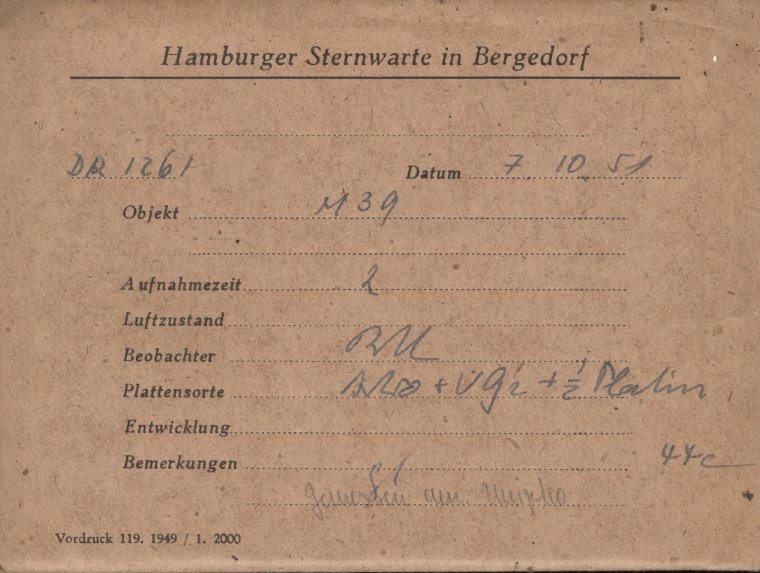 Hamburger Sternwarte in Bergedorf
DR 1261 Datum 7. 10. 51
Objekt M 39
Aufnahmezeit 2
Luftzustand
Beobachter
Plattensorte + VG + ½ Platin
Entwicklung
Bemerkungen 44c
gemessen am
Vordruck 119. 1949 / 1. 2000